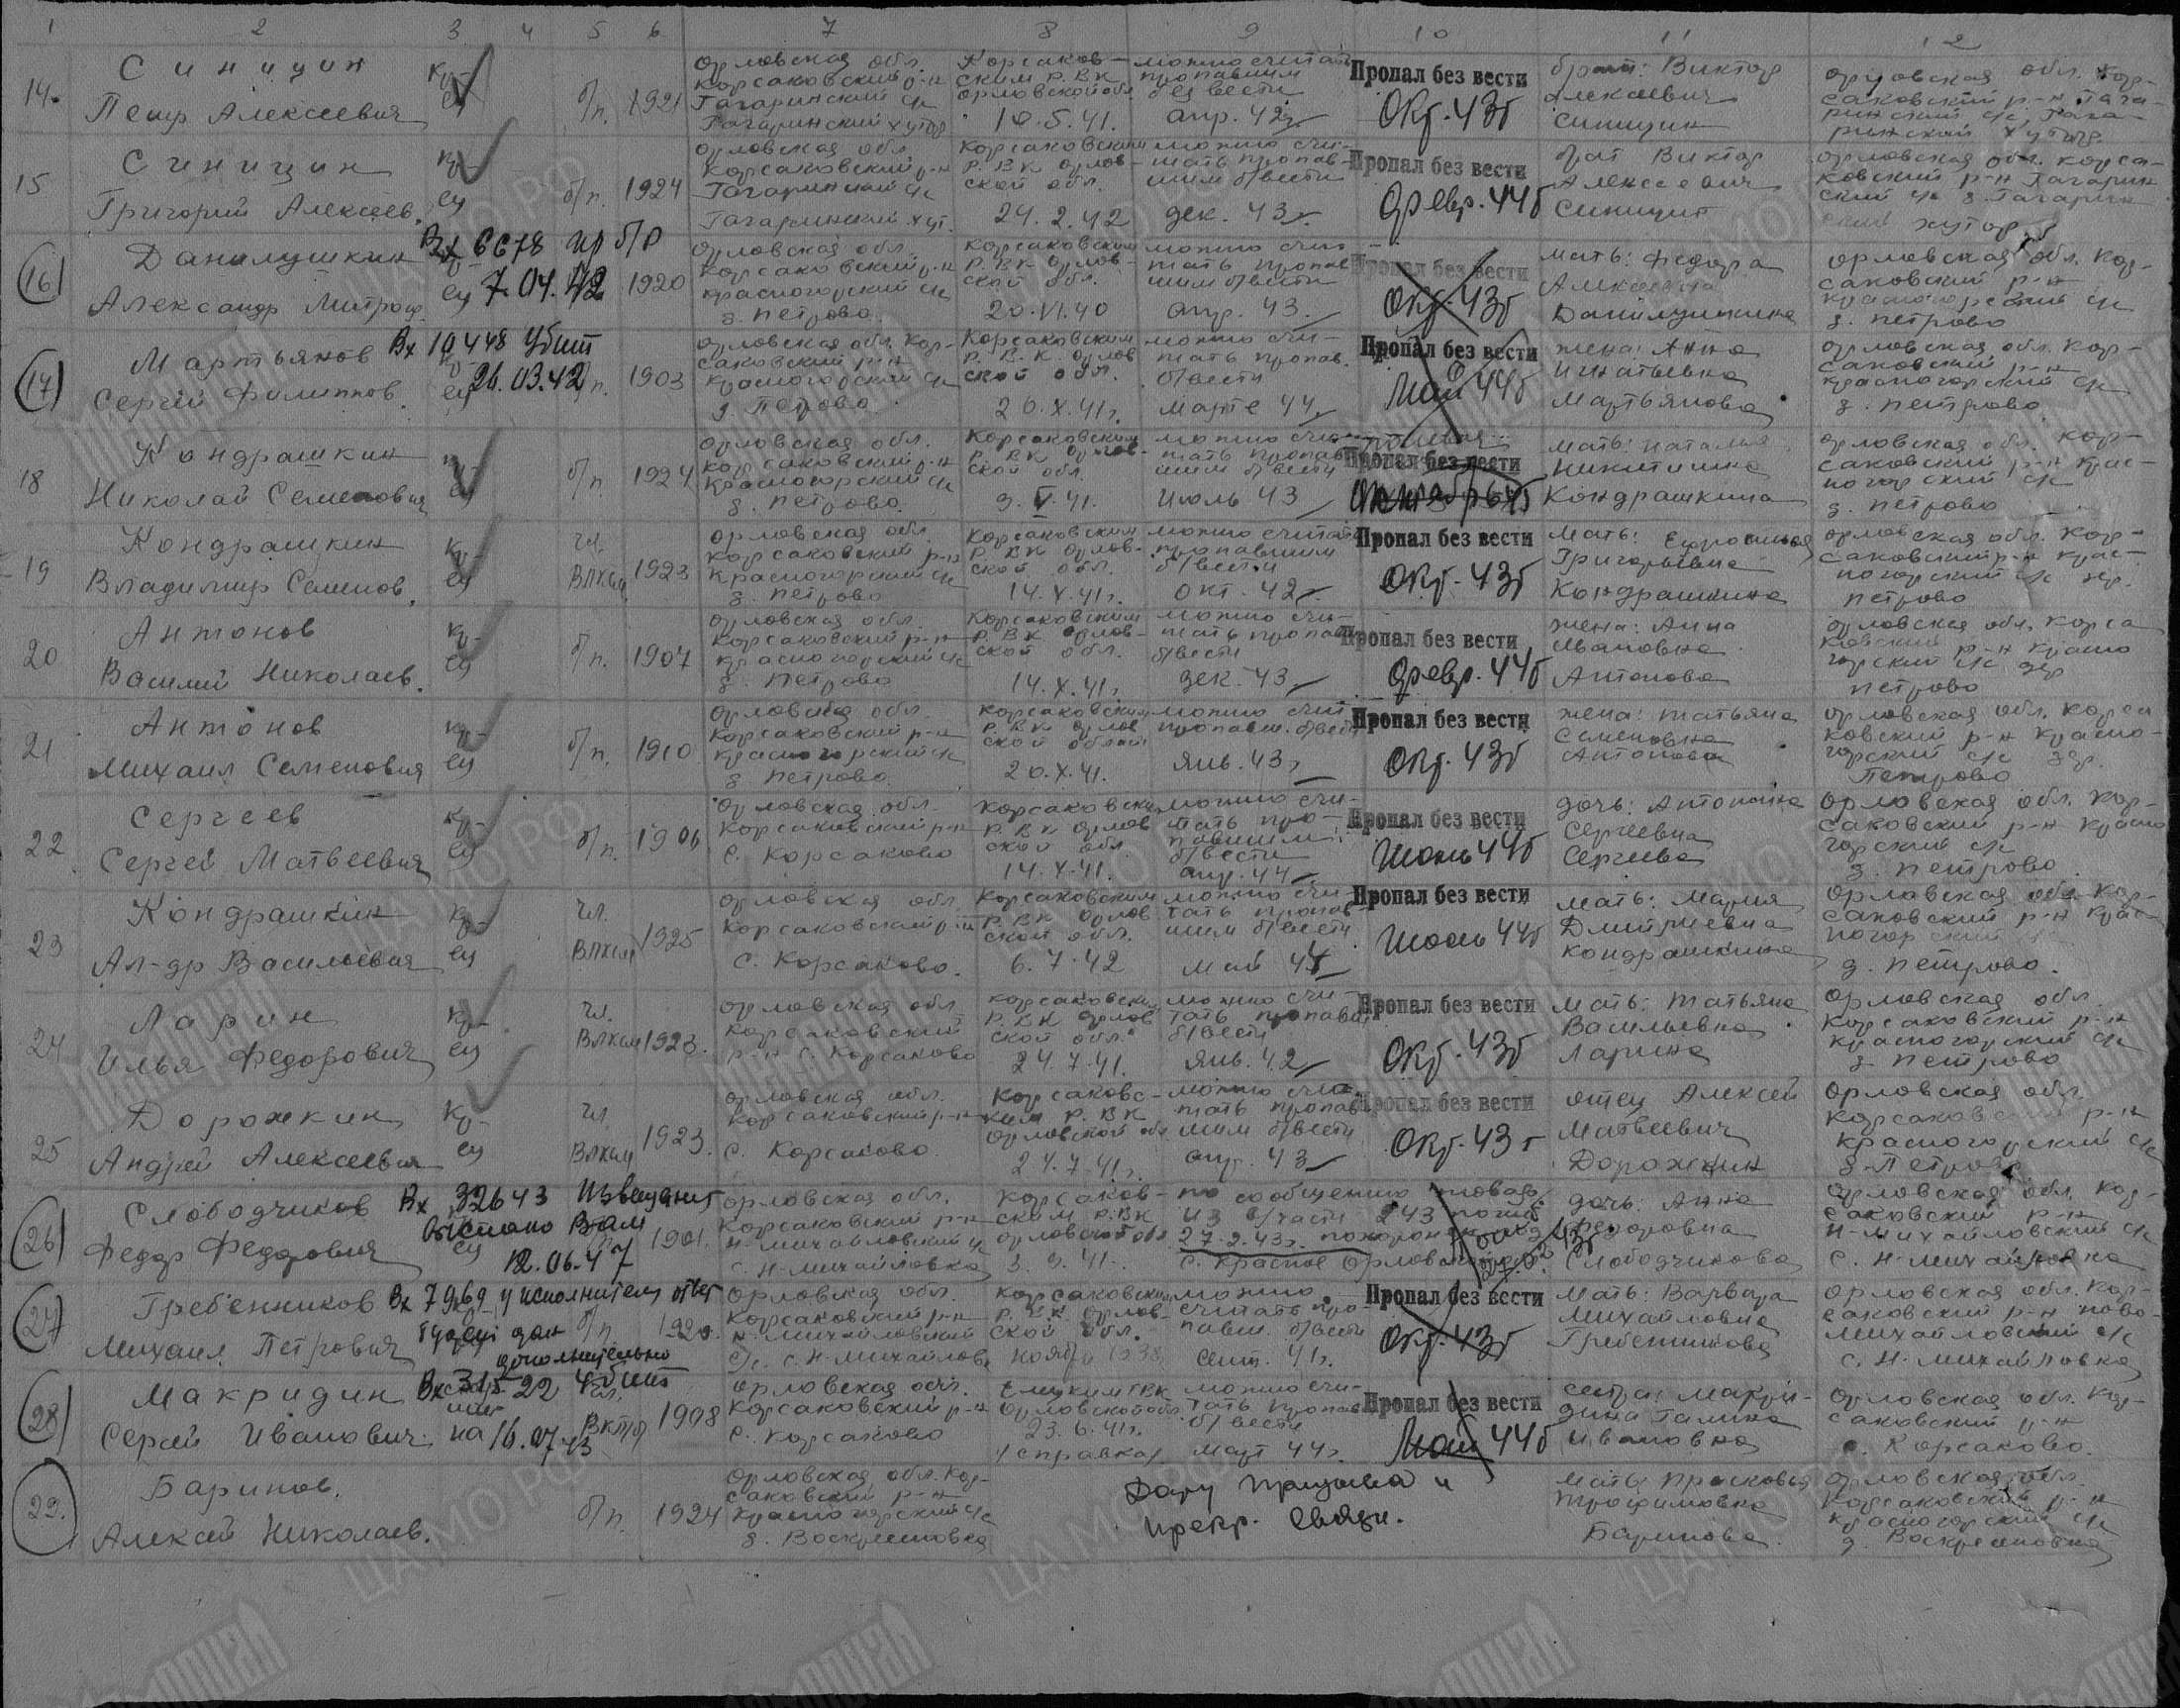 1 2 3 4 5 6 7 8 9 10 11 12
14. Синицин
Петр Алексеевич
кр-
ец
б/п.
1921
Орловская обл.
Корсаковский р-н
Гагаринский с/с
Гагаринский хутор
Корсаков-
ским Р.В.К.
Орловской обл.
10.5.41.
можно считать
пропавшим
без вести
апр. 42г
Пропал без вести
Окт. 43г
брат: Виктор
Алексеевич
Синицин
Орловская обл. Кор-
саковский р-н Гага-
ринский с/с, Гага-
ринский хутор
15 Синицин
Григорий Алексеев.
кр-
ец
б/п.
1924
Орловская обл.
Корсаковский р-н
Гагаринский с/с
Гагаринский хут.
Корсаковским
Р.В.К Орлов-
ской обл.
24.2.42
можно счи-
тать пропав-
шим б/вести
дек. 43г
Пропал без вести
Февр. 44г
брат Виктор
Алексеевич
Синицин
Орловская обл. Корса-
ковский р-н Гагарин
ский с/с д. Гагарин
ский хутор
16 Данилушкин
Александр Митроф.
Вх 6678 пр б/в
ец 7.04.42
1920
Орловская обл.
Корсаковский р-н
Красногорский с/с
д. Петрово.
Корсаковским
Р.В.К. Орлов-
ской обл.
20.VI.40
можно счи-
тать пропав
шим б/вести
апр. 43.
Пропал без вести
Окт. 43г
мать: Федора
Алексеевна
Данилушкина
Орловская обл. Кор-
саковский р-н
Красногорский с/с
д. Петрово
17 Мартьянов
Сергей Филиппов.
Вх 10448 Убит
кр-
ец 26.03.42
б/п.
1903
Орловская обл. Кор-
саковский р-н
Красногорский с/с
д. Петрово
Корсаковским
Р.В.К. Орлов
ской обл.
20.X.41г.
можно счи-
тать пропав.
б/вести
марте 44г
Пропал без вести
Май 44г
жена: Анна
Игнатьевна
Мартьянова
Орловская обл. Кор-
саковский р-н
Красногорский с/с
д. Петрово
18 Кондрашкин
Николай Семенович
кр-
ец
б/п.
1924
Орловская обл.
Корсаковский р-н
Красногорский с/с
д. Петрово.
Корсаковским
Р.В.К Орлов-
ской обл
9.V.41.
можно счи-
тать пропав
шим б/вести
Июль 43
Пропал без вести
мать: Наталья
Никитична
Кондрашкина
Орловская обл. Кор-
саковский р-н Крас-
ногорский с/с
д. Петрово
19 Кондрашкин
Владимир Семенов.
кр-
ец
чл.
ВЛКСМ
1923
Орловская обл.
Корсаковский р-н
Красногорский с/с
д. Петрово
Корсаковским
Р.ВК Орлов-
ской обл.
14.X.41г.
можно считать
пропавшим
б/вести
окт. 42г
Пропал без вести
Окт. 43г
Мать: Ефросинья
Григорьевна
Кондрашкина
Орловская обл. Кор-
саковский р-н Крас-
ногорский с/с дер.
Петрово
20 Антонов
Василий Николаев.
кр-
ец
б/п.
1907
Орловская обл.
Корсаковский р-н
Красногорский с/с
д. Петрово
Корсаковским
Р.В.К Орлов-
ской обл.
14.X.41г
можно счи-
тать пропав
б/вести
дек. 43г
Пропал без вести
Февр. 44г
жена: Анна
Ивановна
Антонова
Орловская обл. Корса
ковский р-н Красно
горский с/с дер
Петрово
21. Антонов
Михаил Семенович
кр-
ец
б/п.
1910
Орловская обл.
Корсаковский р-н
Красногорский с/с
д. Петрово.
Корсаковским
Р.В.К Орлов
ской облой
20.X.41.
можно счит
пропавш. б/вест
янв. 43г
Пропал без вести
Окт. 43г
жена: Татьяна
Семеновна
Антонова
Орловская обл. Корса
ковский р-н Красно-
горский с/с дер.
Петрово
22. Сергеев
Сергей Матвеевич
кр-
ец
б/п.
1906
Орловская обл.
Корсаковский р-н
с. Корсаково
Корсаковским
Р.В.К Орлов
ской обл
14.X.41.
можно счи-
тать про-
павшим
б/вести
апр. 44г
Пропал без вести
Июнь 44г
дочь: Антонина
Сергеевна
Сергеева
Орловская обл. Кор-
саковский р-н Красно
горский с/с
д. Петрово
23 Кондрашкин
Ал-др Васильевич
кр-
ец
чл.
ВЛКСМ
1925
Орловская обл
Корсаковский р-н
с. Корсаково.
Корсаковским
Р.В.К Орлов
ской обл.
6.7.42
можно счи-
тать пропав-
шим б/вести
май 44
Пропал без вести
Июль 44г
мать: Мария
Дмитриевна
Кондрашкина
Орловская обл Кор-
саковский р-н Крас
ногорский
д. Петрово.
24 Ларин
Илья Федорович
кр-
ец
чл.
ВЛКСМ
1923.
Орловская обл
Корсаковский
р-н с. Корсаково
Корсаковским
Р.В.К Орлов
ской обл.
24.7.41.
можно счи-
тать пропав
б/вести
янв. 42г
Пропал без вести
Окт. 43г
мать: Татьяна
Васильевна
Ларина
Орловская обл
Корсаковский р-н
Красногорский с/с
д. Петрово
25 Дорожкин
Андрей Алексеевич
кр-
ец
чл.
ВЛКСМ
1923.
Орловская обл.
Корсаковский р-н
с. Корсаково
Корсаковс-
ким Р.ВК
Орловской обл
24.7.41г.
можно счи-
тать пропав-
шим б/вести
апр. 43г
Пропал без вести
Окт. 43 г
отец Алексей
Матвеевич
Дорожкин
Орловская обл.
Корсаковский р-н
Красногорский с/с
д. Петрово
26 Слободчиков
Федор Федорович
Вх 32643 Извещение
Выслано Вам
12.06.47
1901.
Орловская обл.
Корсаковский р-н
Н-Михайловский с/с
с. Н-Михайловка
Корсаков-
ским Р.ВК
Орловской обл
3.9.41.
по сообщению товарищ
из в/части 243
27.2.43г. похоронен
с. Красное Орловской обл
дочь: Анна
Федоровна
Слободчикова
Орловская обл. Кор-
саковский р-н
Н-Михайловский с/с
с. Н-Михайловка
27 Гребенников
Михаил Петрович
Вх 7969 у исполнителя ответ
будет дан
дополнительно
б/п.
1920.
Орловская обл.
Корсаковский р-н
Н. Михайловский
с/с. с. Н-Михайловка
Корсаковским
Р.В.К Орлов-
ской обл.
можно
считать про-
павш. б/вести
сент. 41г.
Пропал без вести
Окт. 43г
мать: Варвара
Михайловна
Гребенникова
Орловская обл. Кор-
саковский р-н Ново-
Михайловский с/с
с. Н-Михайловка
28 Макридин
Сергей Иванович
убит
16.07.43
1908
Орловская обл.
Корсаковский р-н
с. Корсаково
Елецким ГВК
Орловской обл.
23.6.41г.
/справка/
можно счи-
тать пропав
б/вести
март 44г.
Пропал без вести
Май 44г
сестра: Макри-
дина Галина
Ивановна
Орловская обл. Кор-
саковский р-н
с. Корсаково.
29. Баринов.
Алексей Николаев.
б/п.
1924
Орловская обл. Кор-
саковский р-н
Красногорский с/с
д. Воскресеновка
Дату призыва и
прекр. связи.
мать: Прасковья
Трофимовна
Баринова.
Орловская обл.
Корсаковский р-н
Красногорский с/с
д. Воскресеновка